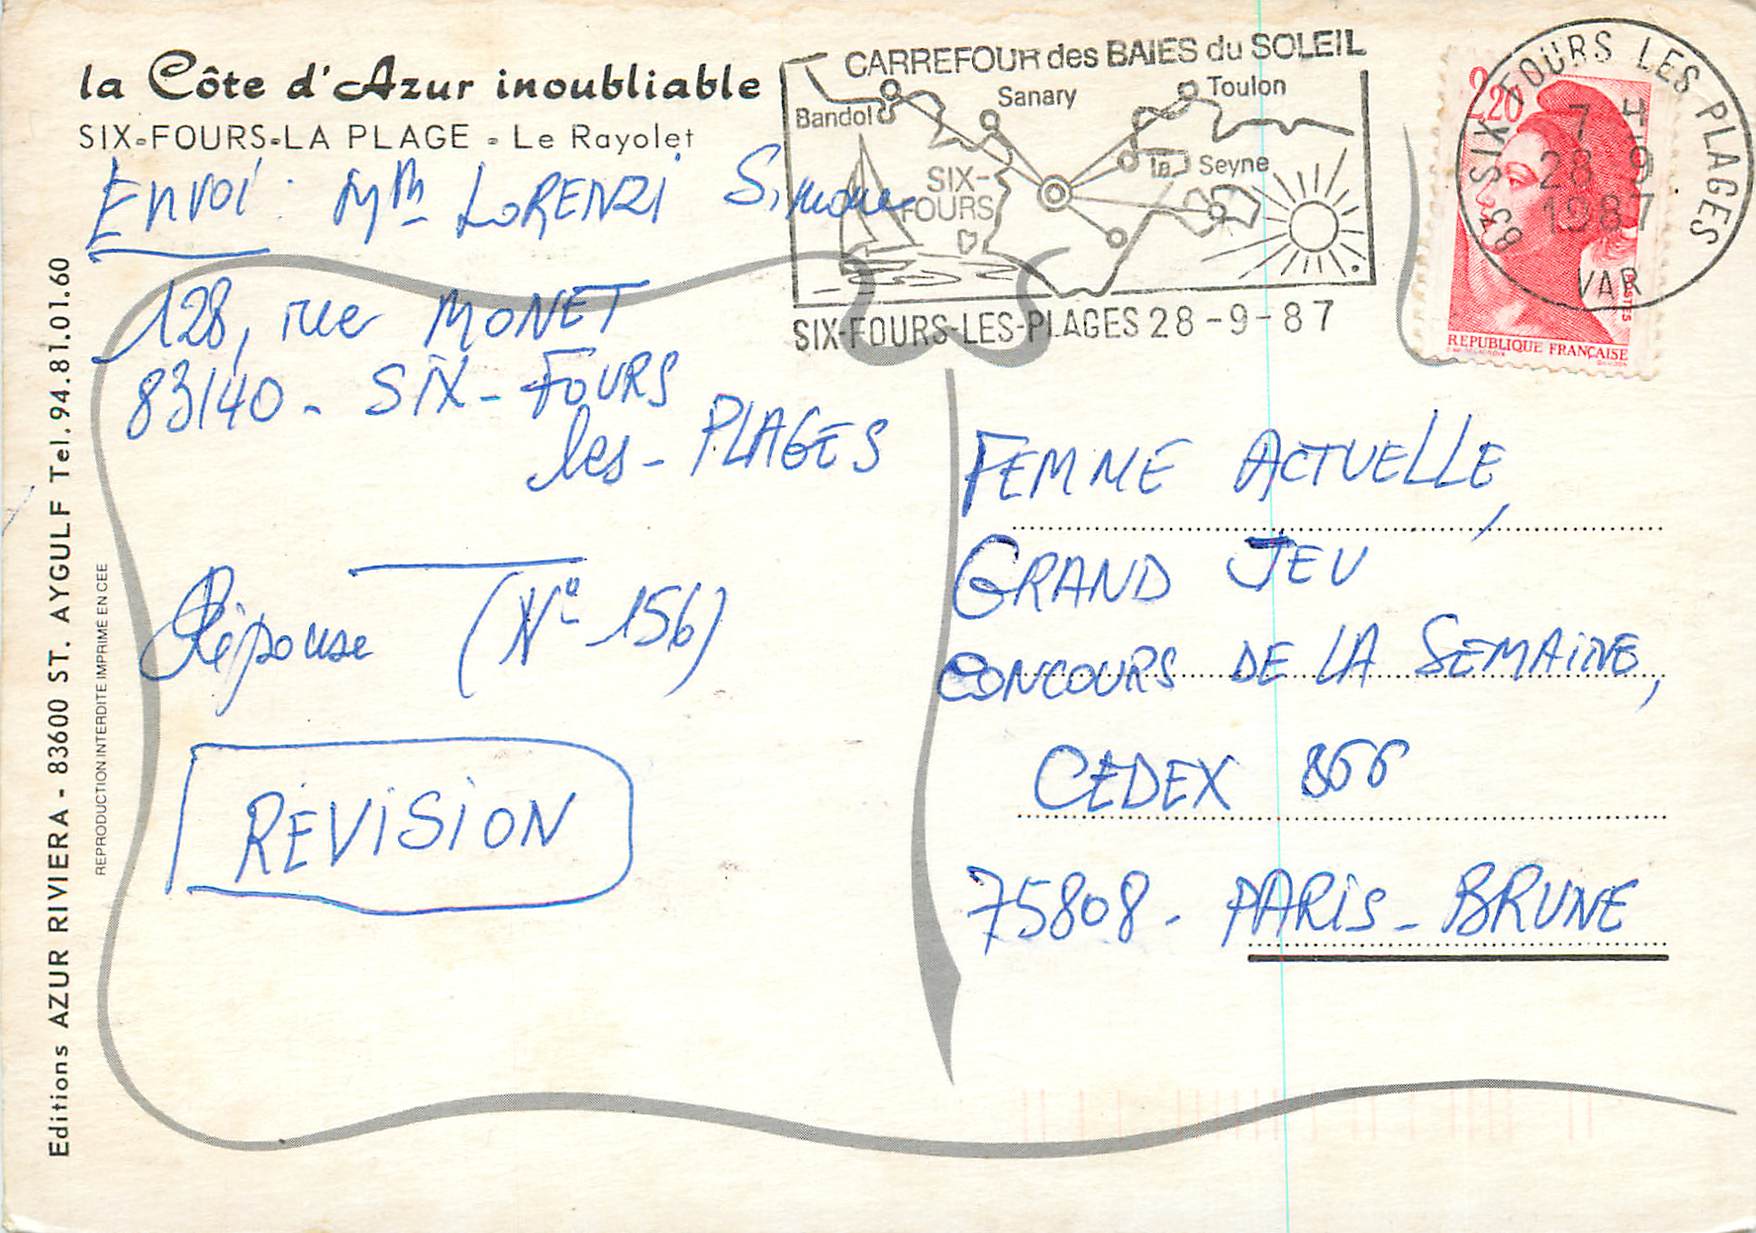 la Côte d'Azur inoubliable
SIX-FOURS-LA PLAGE - Le Rayolet
Envoi : Mm LORENZI Simone
128, rue MONET
83140 - SIX-FOURS
les - PLAGES
Réponse (No 156)
REVISION
CARREFOUR des BAIES du SOLEIL
Bandol
Sanary
Toulon
la Seyne
SIX-
FOURS
SIX-FOURS-LES-PLAGES 28-9-87
2,20
POSTES
REPUBLIQUE FRANÇAISE
83 SIX FOURS LES PLAGES
7 H
28 9
1987
VAR
FEMME ACTUELLE,
GRAND JEU
CONCOURS DE LA SEMAINE,
CEDEX 866
75808 - PARIS - BRUNE
Editions AZUR RIVIERA - 83600 ST. AYGULF Tel. 94.81.01.60
REPRODUCTION INTERDITE IMPRIME EN CEE